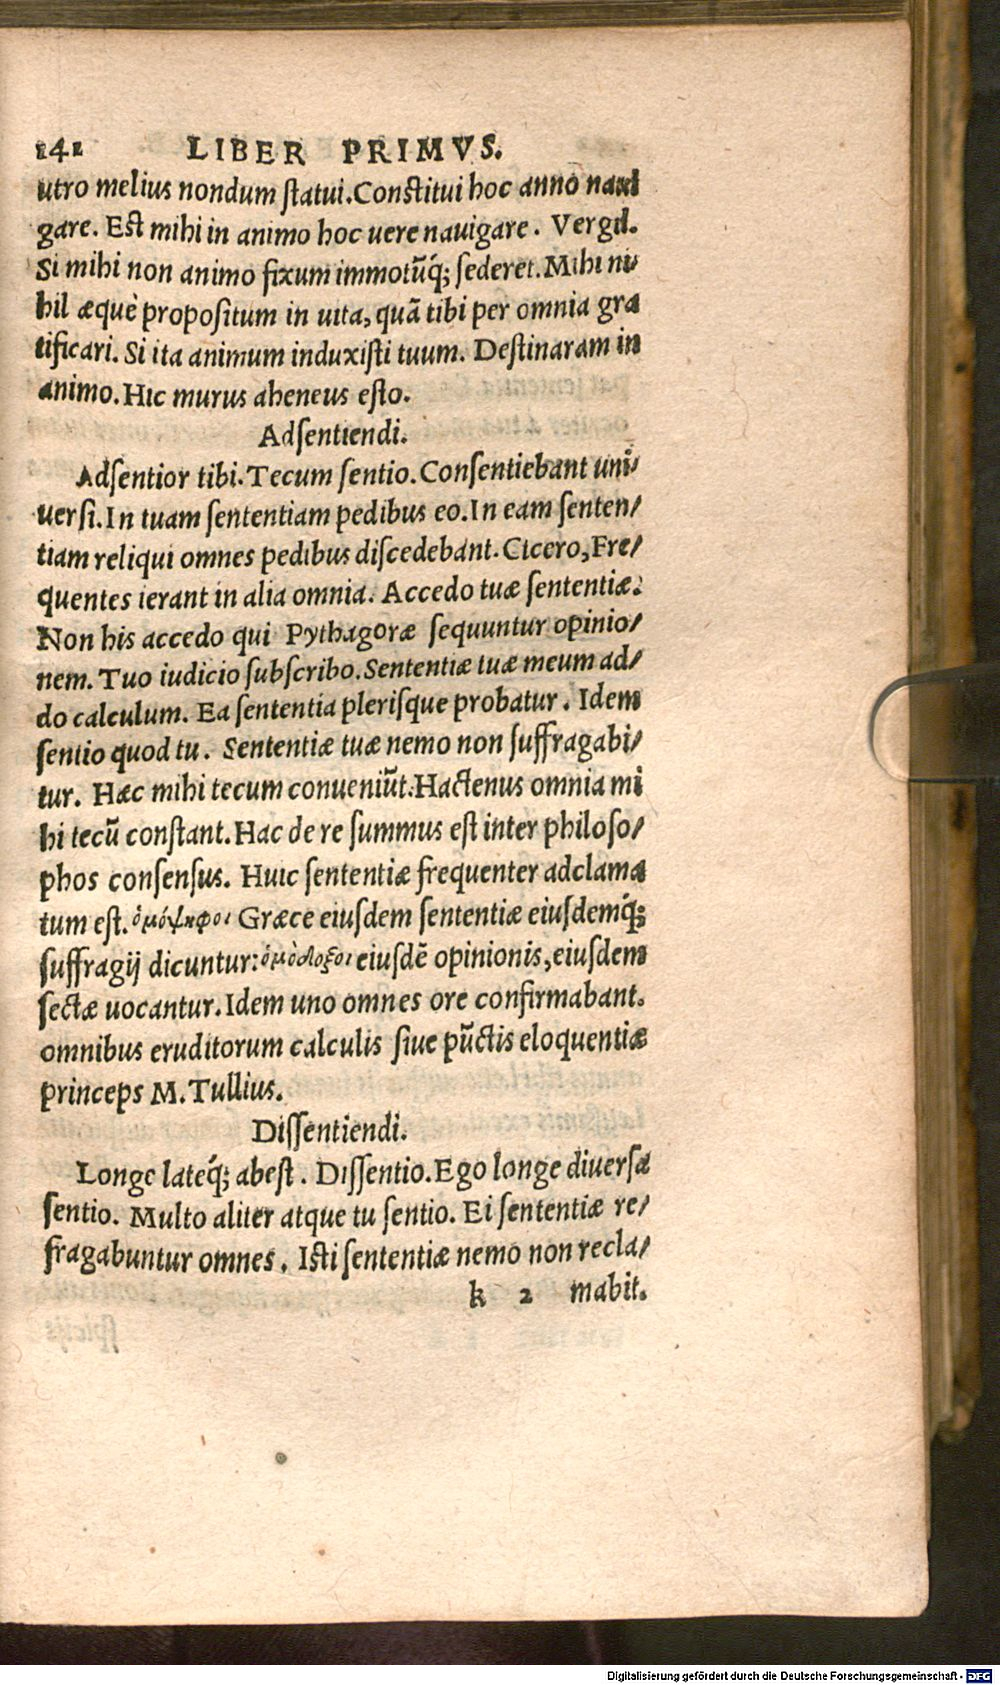 141 LIBER PRIMVS.
utro melius nondum ſtatui. Conſtitui hoc anno naui
gare. Eſt mihi in animo hoc uere nauigare. Vergil.
Si mihi non animo fixum immotũq́; ſederet. Mihi ni/
hil æquè propoſitum in uita, quã tibi per omnia gra
tificari. Si ita animum induxiſti tuum. Deſtinaram in
animo. Hic murus aheneus eſto.
Adſentiendi.
Adſentior tibi. Tecum ſentio. Conſentiebant uni/
uerſi. In tuam ſententiam pedibus eo. In eam ſenten/
tiam reliqui omnes pedibus diſcedebant. Cicero, Fre/
quentes ierant in alia omnia. Accedo tuæ ſententiæ.
Non his accedo qui Pythagoræ ſequuntur opinio/
nem. Tuo iudicio ſubſcribo. Sententiæ tuæ meum ad/
do calculum. Ea ſententia pleriſque probatur. Idem
ſentio quod tu. Sententiæ tuæ nemo non ſuffragabi/
tur. Hæc mihi tecum conueniũt. Hactenus omnia mi
hi tecũ conſtant. Hac de re ſummus eſt inter philoſo/
phos conſenſus. Huic ſententiæ frequenter adclama
tum eſt. ὁμόψηφοι Græce eiuſdem ſententiæ eiuſdemq́;
ſuffragij dicuntur: ὁμόδοξοι eiuſdẽ opinionis, eiuſdem
ſectæ uocantur. Idem uno omnes ore confirmabant.
omnibus eruditorum calculis ſiue pũctis eloquentiæ
princeps M. Tullius.
Diſſentiendi.
Longe lateq́; abeſt. Diſſentio. Ego longe diuerſa
ſentio. Multo aliter atque tu ſentio. Ei ſententiæ re/
fragabuntur omnes. Iſti ſententiæ nemo non recla/
k 2 mabit.
Digitalisierung gefördert durch die Deutsche Forschungsgemeinschaft - DFG